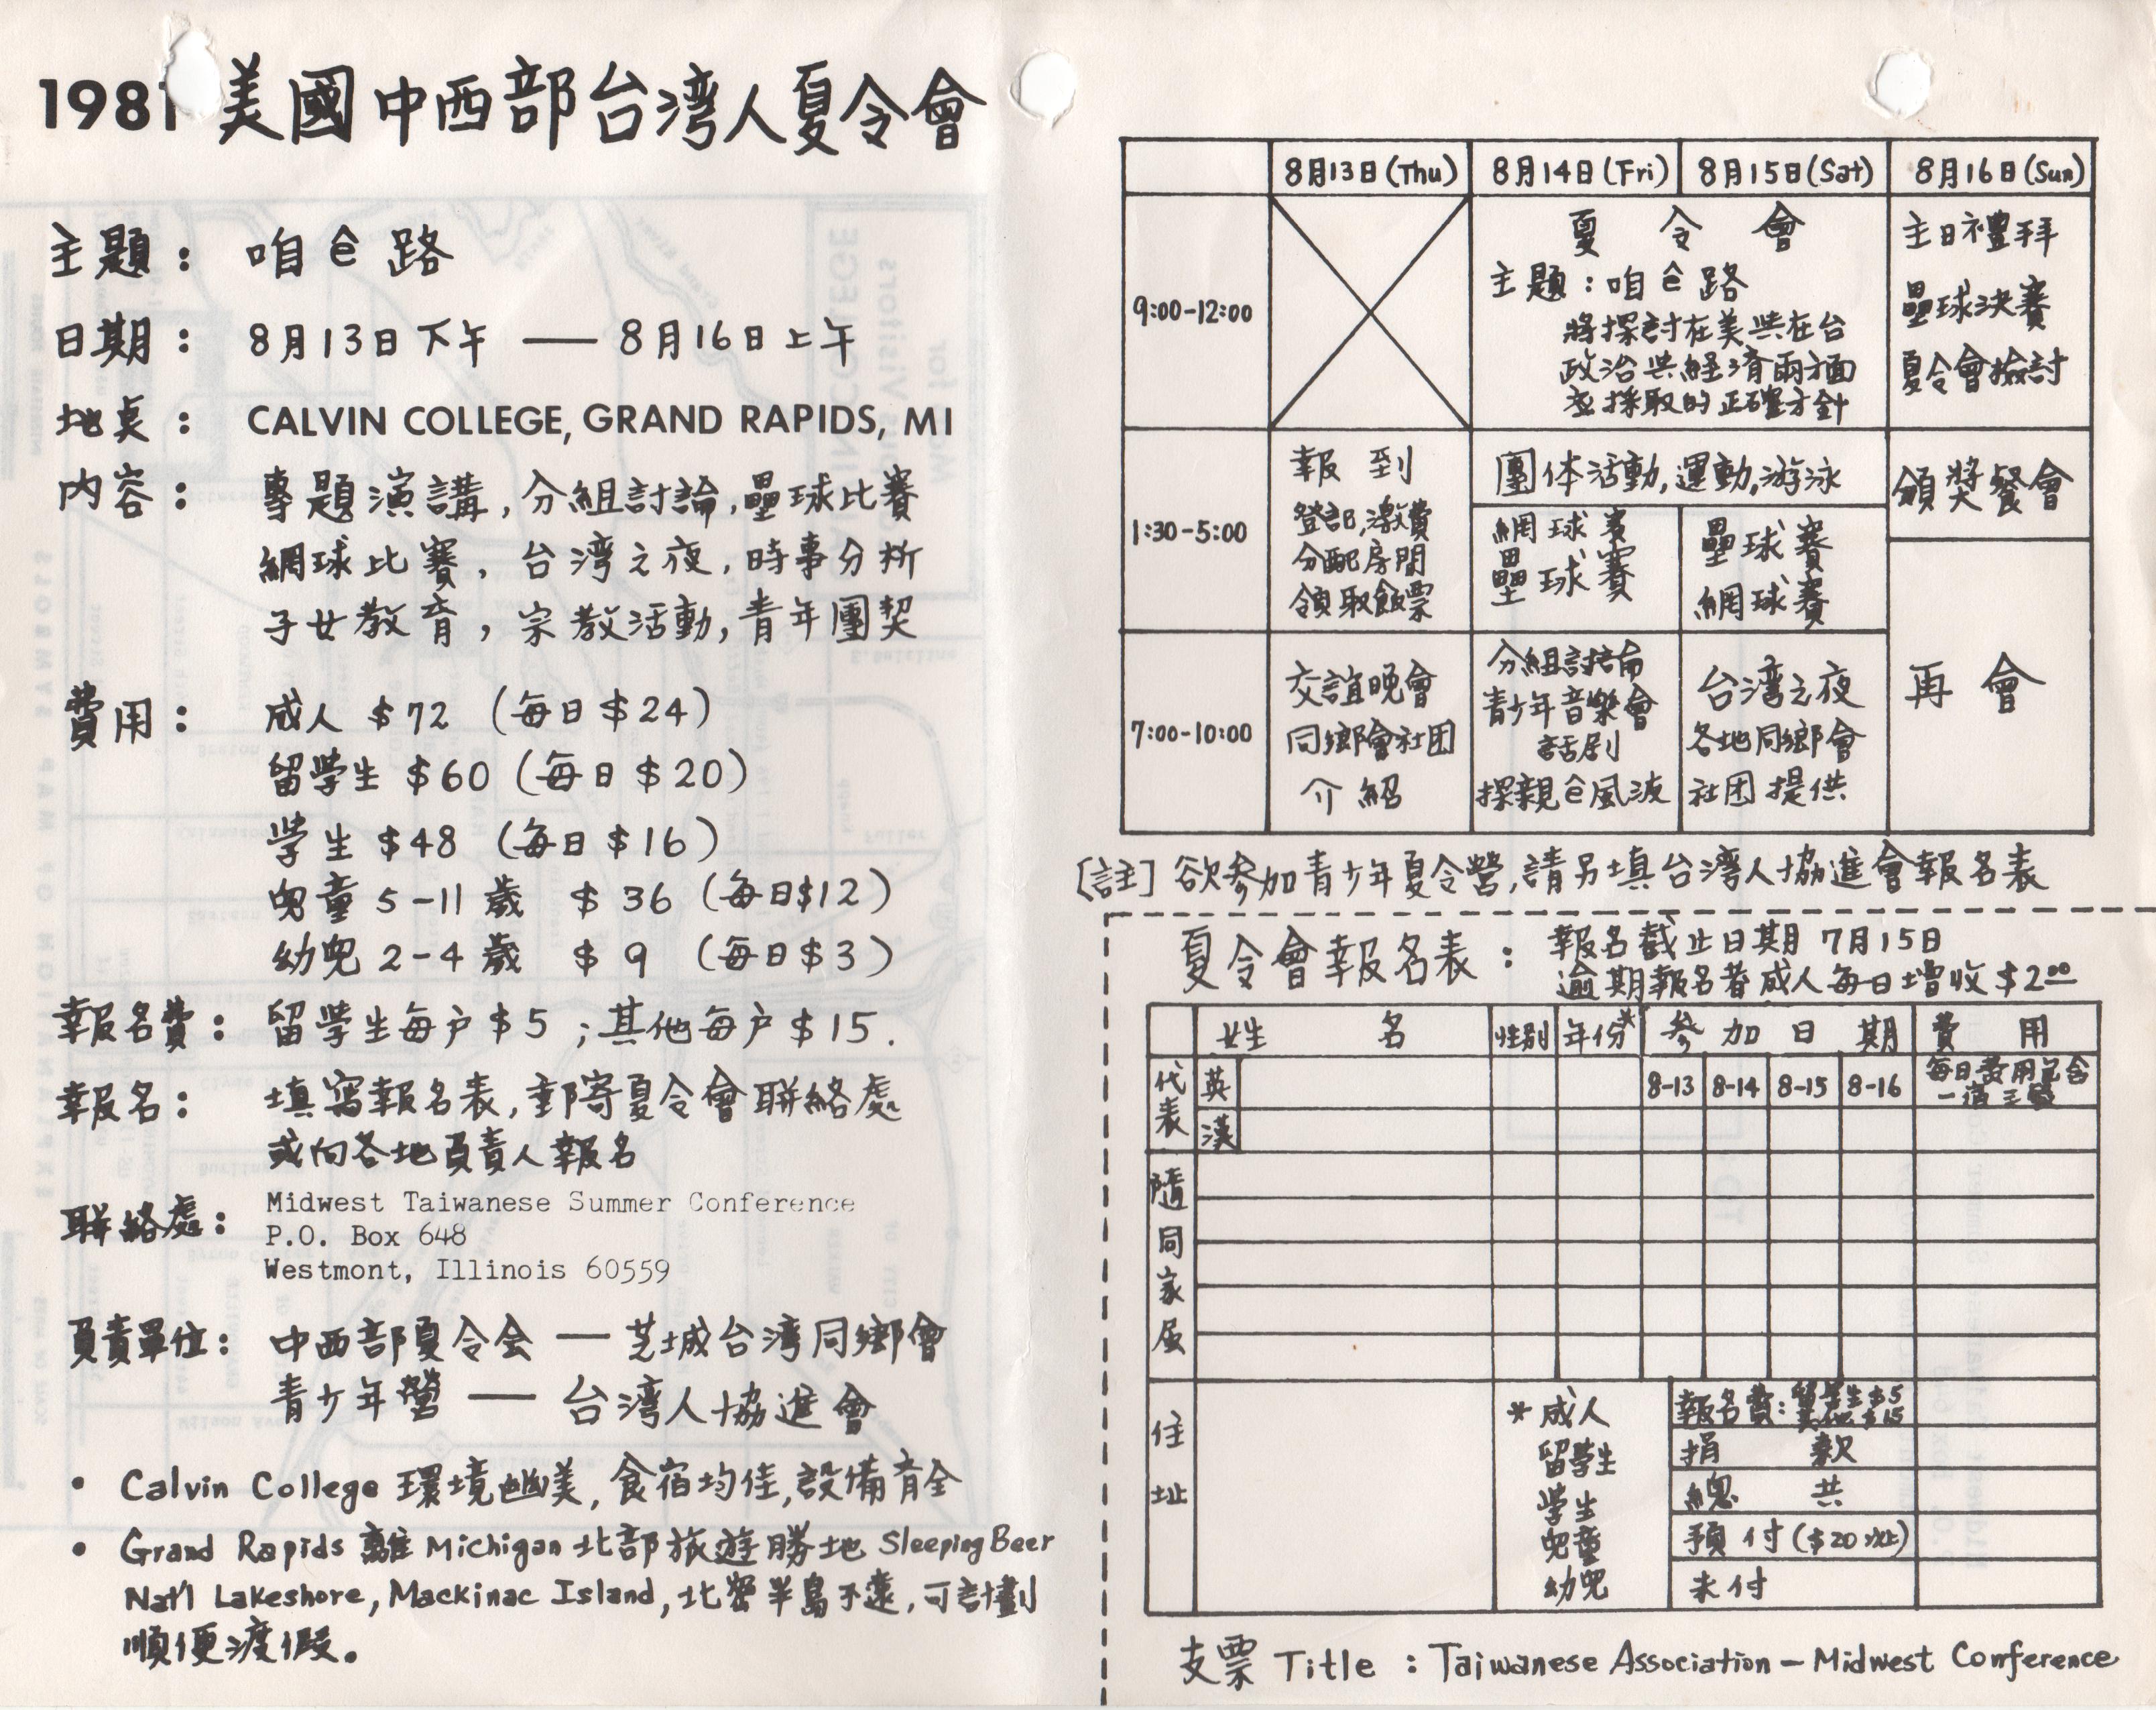 1981 美國中西部台湾人夏令會
主題： 咱 ê 路
日期： 8月13日下午 —— 8月16日上午
地奌： CALVIN COLLEGE, GRAND RAPIDS, MI
内容： 專題演講，分組討論，壘球比賽
網球比賽，台湾之夜，時事分析
子女教育，宗教活動，青年團契
費用： 成人 $72 (每日$24)
留学生 $60 (每日$20)
学生 $48 (每日$16)
兒童 5-11 歲 $36 (每日$12)
幼兒 2-4 歲 $9 (每日$3)
報名費： 留学生每户$5；其他每户$15.
報名： 填寫報名表，郵寄夏令會聯絡處
或向各地負責人報名
聯絡處： Midwest Taiwanese Summer Conference
P.O. Box 648
Westmont, Illinois 60559
負責單位： 中西部夏令会 — 芝城台湾同鄉會
青少年營 — 台湾人協進會
• Calvin College 環境幽美，食宿均佳，設備齐全
• Grand Rapids 離 Michigan 北部旅遊勝地 Sleeping Beer
Nat'l Lakeshore, Mackinac Island, 北密半島不遠，可計劃
順便渡假。
8月13日(Thu) 8月14日(Fri) 8月15日(Sat) 8月16日(Sun)
9:00-12:00
夏令會
主題：咱 ê 路
將探討在美與在台
政治與経済兩方面
应採取的正確方針
主日禮拜
壘球決賽
夏令會檢討
1:30-5:00
報到
登記，繳費
分配房間
領取飯票
團体活動，運動，游泳
網球賽
壘球賽
壘球賽
網球賽
頒奬餐會
7:00-10:00
交誼晚會
同鄉會社团
介紹
分組討論
青少年音樂會
話劇
探親 ê 風波
台湾之夜
各地同鄉會
社团提供
再會
[註] 欲参加青少年夏令營，請另填台湾人協進會報名表
夏令會報名表： 報名截止日期 7月15日
逾期報名者成人每日增收 $2.00
姓名 性別 年份* 参加日期 費用
代表 英 8-13 8-14 8-15 8-16 每日費用包含
一宿三餐
漢
隨同家屬
住址
*成人
留学生
学生
兒童
幼兒
報名費：留学生$5
其他$15
捐款
總共
預付($20以上)
未付
支票 Title : Taiwanese Association – Midwest Conference